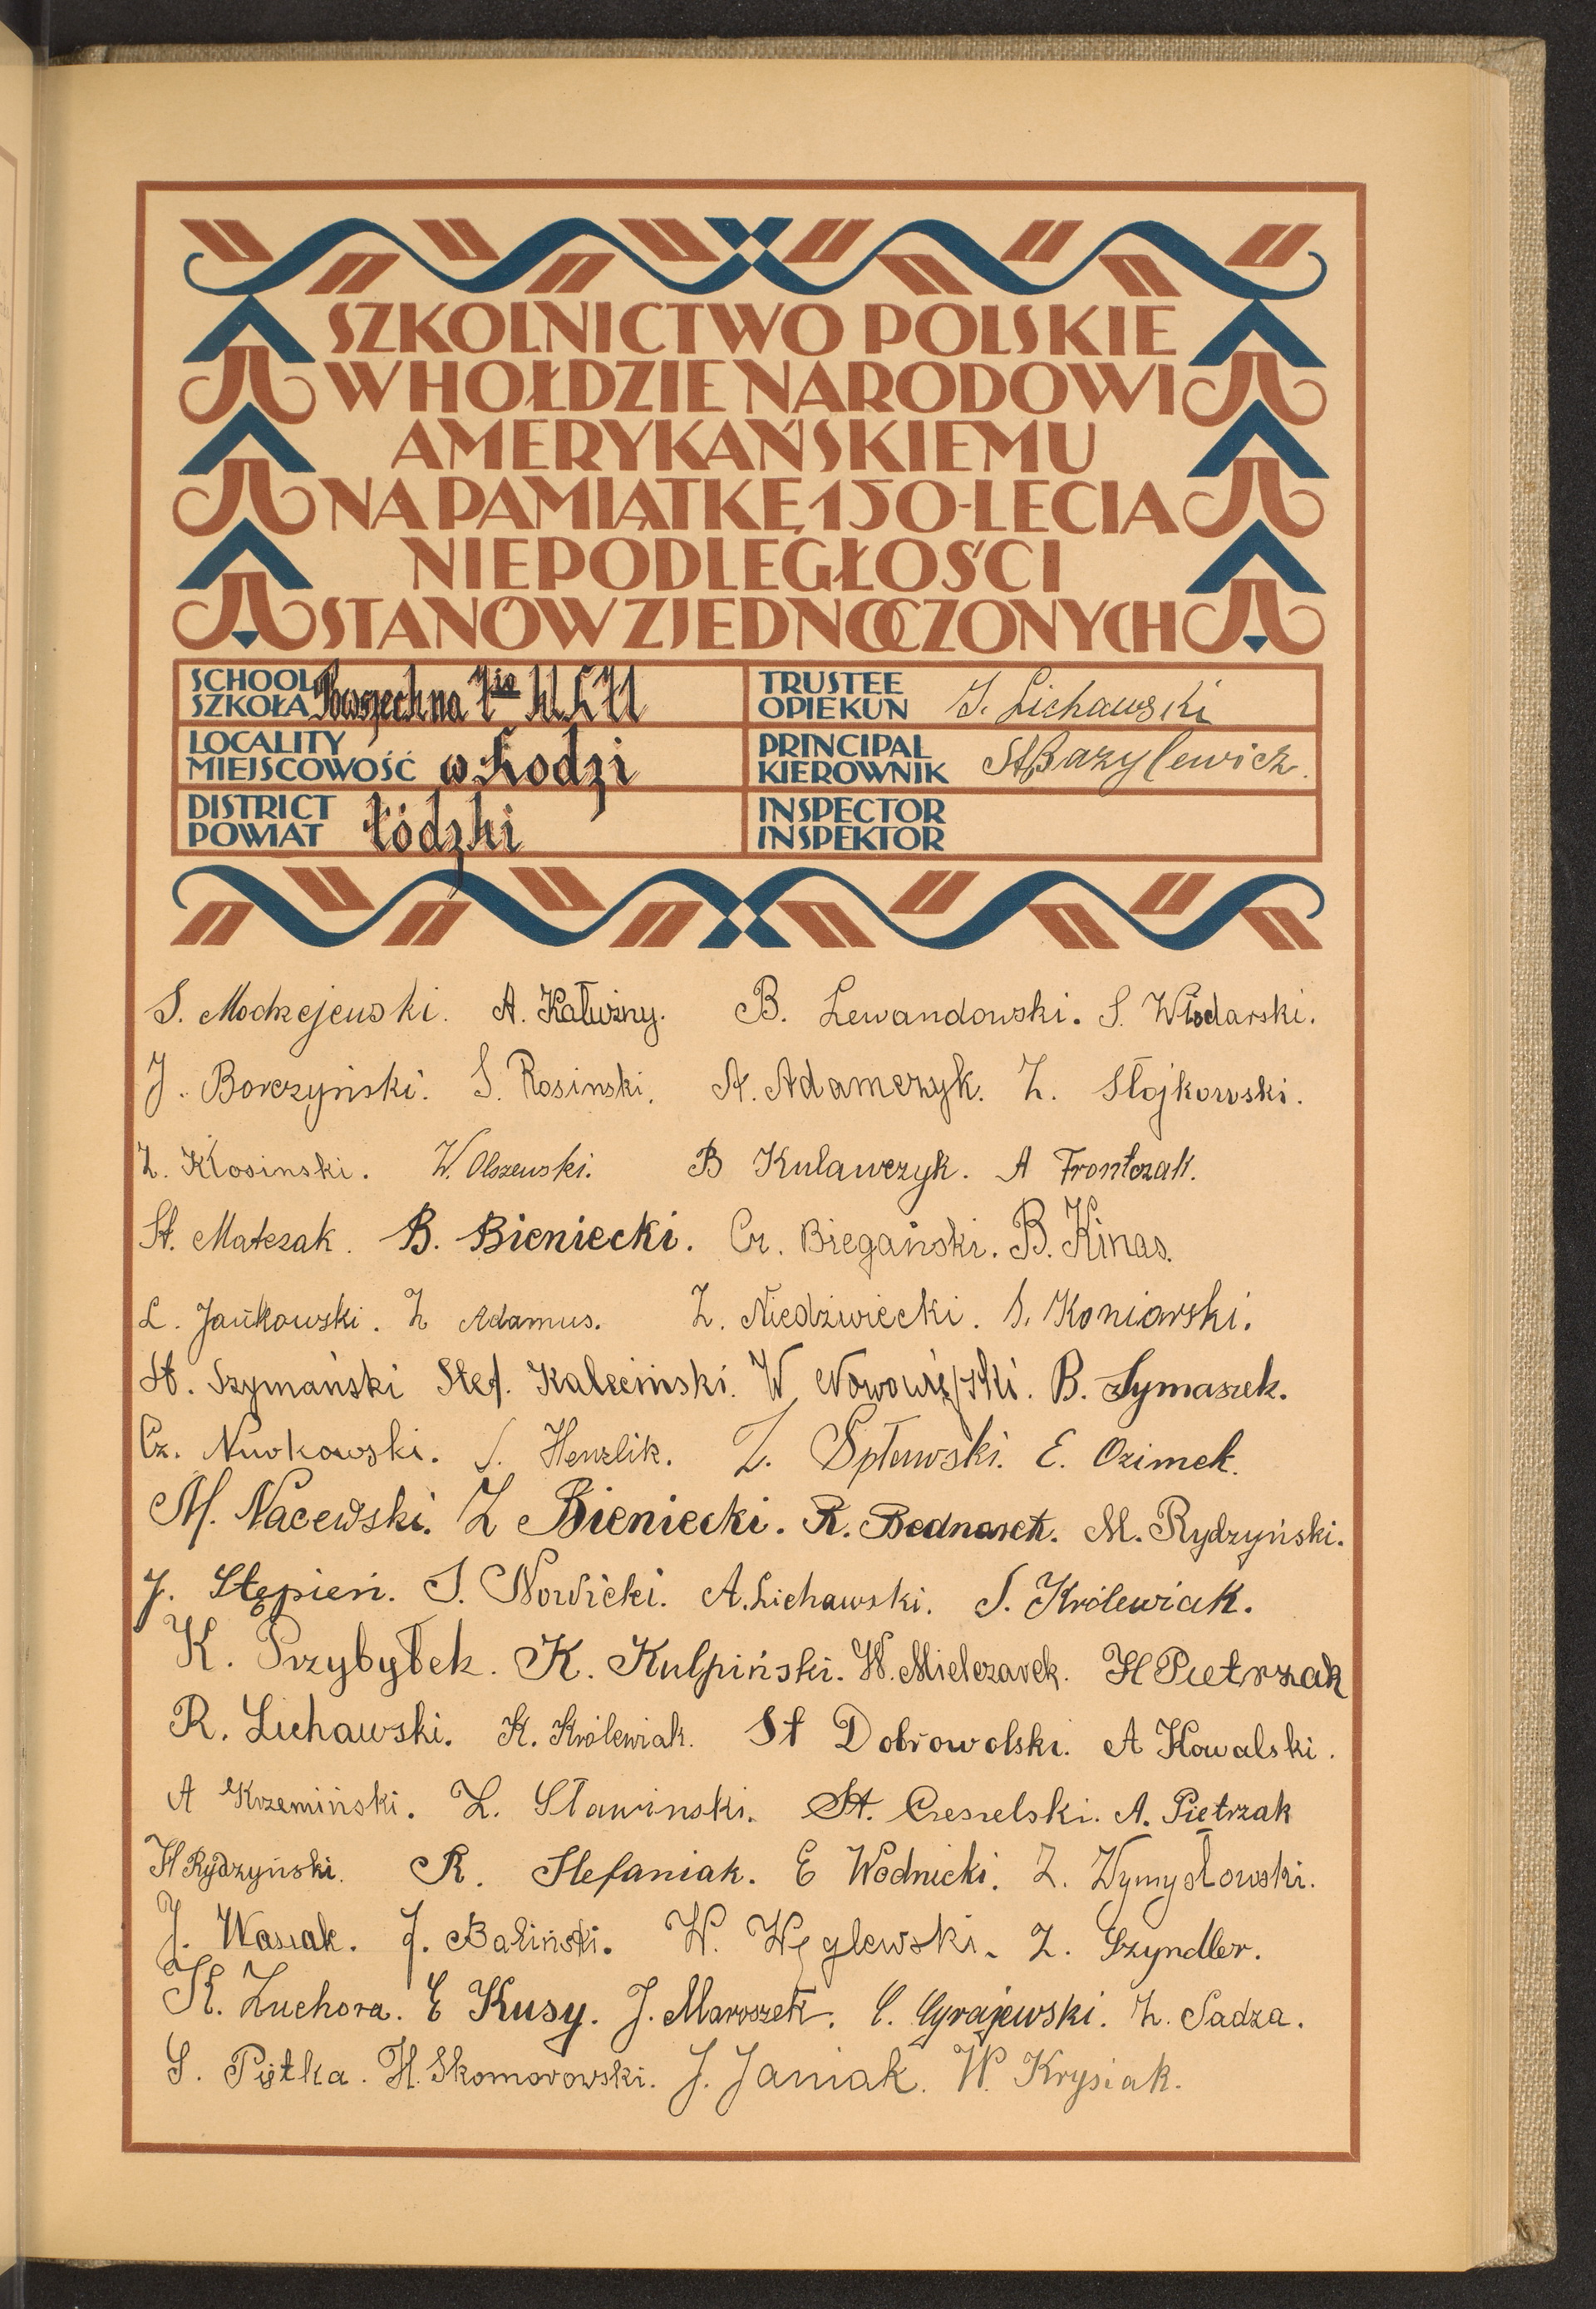 SZKOLNICTWO POLSKIE
W HOŁDZIE NARODOWI
AMERYKAŃSKIEMU
NA PAMIĄTKĘ 150-LECIA
NIEPODLEGŁOŚCI
STANÓW ZJEDNOCZONYCH
SCHOOL
SZKOŁA Powszechna
TRUSTEE
OPIEKUN J. Lichawski
LOCALITY
MIEJSCOWOŚĆ w Łodzi
PRINCIPAL
KIEROWNIK St Bazylewicz.
DISTRICT
POWIAT Łódzki
INSPECTOR
INSPEKTOR
S. Modrzejewski. A. Kałużny. B. Lewandowski. S. Włodarski.
J. Borczyński. S. Rosinski. A. Adamczyk. Z. Stojkowski.
Z. Kłosinski. W. Olszewski. B Kulawczyk. A Frontczak.
St. Matczak. B. Bieniecki. Cz. Biegański. B. Kinas.
L. Jańkowski. Z Adamus. Z. Niedźwiecki. S. Koniarski.
St. Szymański Stef. Kalzciński. W Nowowiejski. B. Szymaszek.
Cz. Nurkowski. J. Henzlik. Z. Spławski. E. Ozimek.
M. Nacewski. Z Bieniecki. R. Bednarek. M. Rydzyński.
J. Stępień. S. Nowicki. A. Lichawski. S. Królewiak.
K. Przybyłek. K. Kulpiński. W. Mielczarek. H Pietrzak
R. Lichawski. K. Królewiak. St Dobrowolski. A Kowalski.
A Krzemiński. Z. Sławinski. St. Ciesielski. A. Pietrzak
H Rydzyński. R. Stefaniak. E Wodnicki. Z. Wymysłowski.
J. Wasiak. J. Baliński. W. Węglewski. Z. Szyndler.
K. Zuchora. E Kusy. J. Maroszek. C. Cyrajewski. Z. Sadza.
S. Piętka. H. Skomorowski. J. Janiak. W. Krysiak.